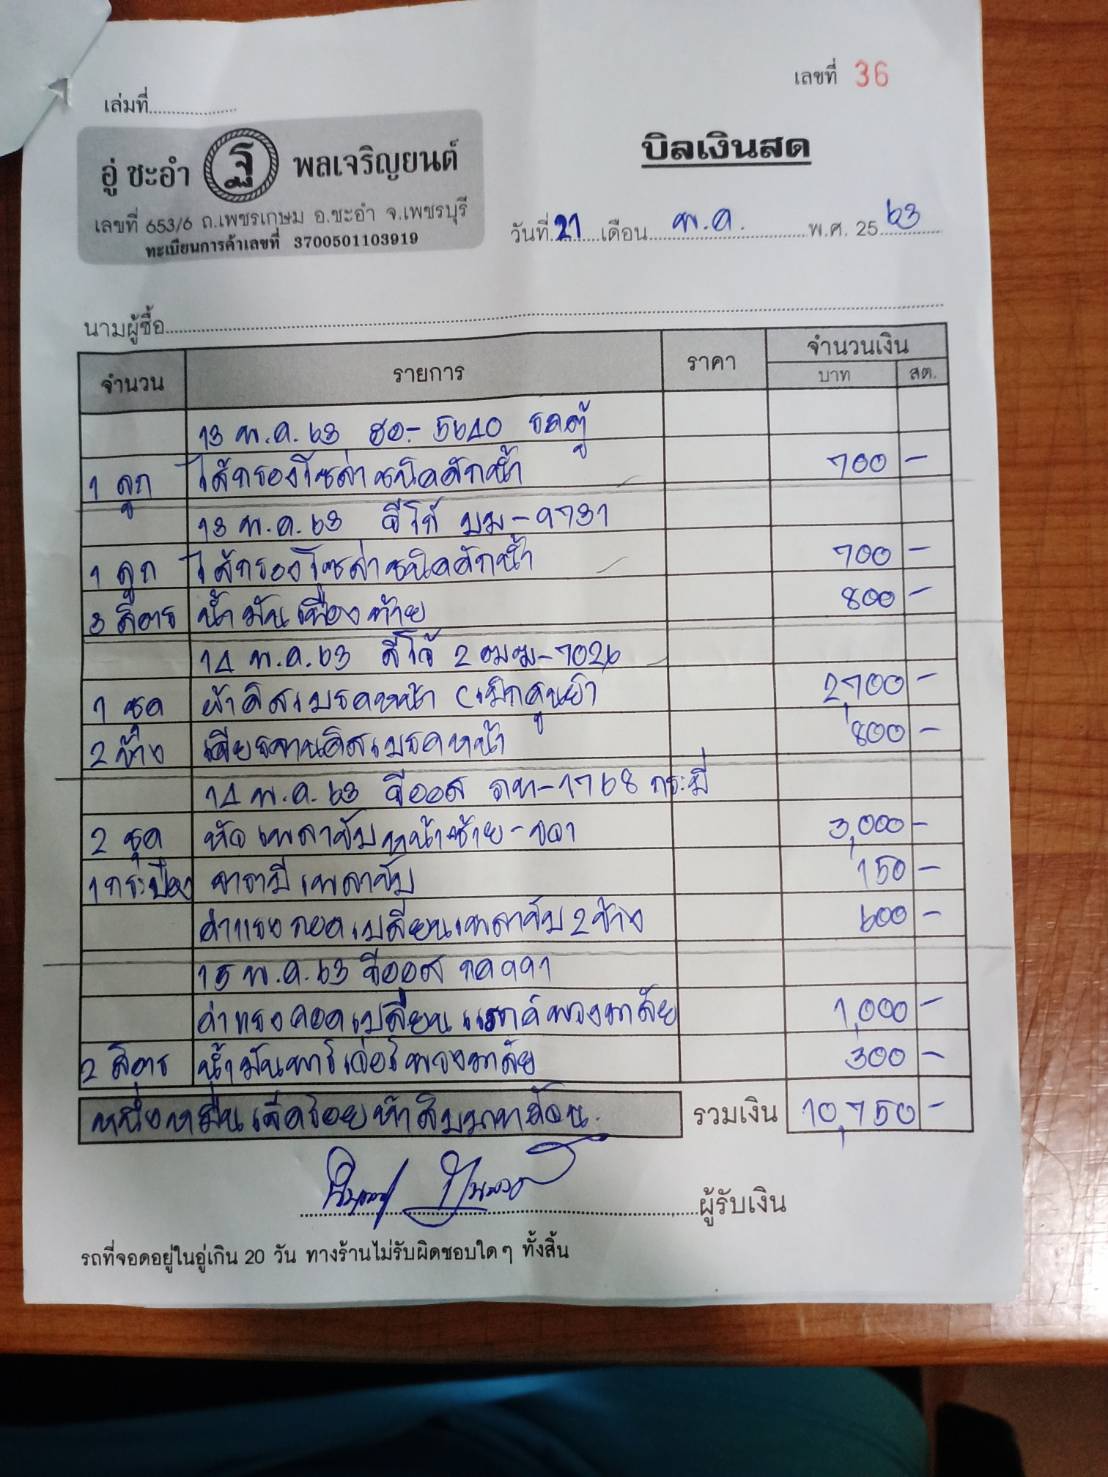 เลขที่ 36
เล่มที่
อู่ ชะอำ ฐิ พลเจริญยนต์
เลขที่ 653/6 ถ.เพชรเกษม อ.ชะอำ จ.เพชรบุรี
ทะเบียนการค้าเลขที่ 3700501103919
บิลเงินสด
วันที่ 21 เดือน พ.ค. พ.ศ. 25 63
นามผู้ซื้อ
จำนวน รายการ ราคา จำนวนเงิน
บาท สต.
13 พ.ค. 63 ฮอ.- 5640 รถตู้
1 ลูก ไส้กรองโซล่าชนิดดักน้ำ 700 -
13 พ.ค. 63 อีโก้ บม-9731
1 ลูก ไส้กรองโซล่าชนิดดักน้ำ 700 -
3 ลิตร น้ำมันเฟืองท้าย 800 -
14 พ.ค. 63 2 ฒฆ-7026
1 ชุด ผ้าดิสเบรคหน้า (เบิกศูนย์) 2,700 -
2 ข้าง เจียรจานดิสเบรคหน้า 800 -
14 พ.ค. 63 อีออส 1768 กระบี่
2 ชุด หัวเพลาขับหน้าซ้าย-ขวา 3,000 -
1 กระป๋อง จารบีเพลาขับ 150 -
ค่าแรงถอดเปลี่ยนเพลาขับ 2 ข้าง 600 -
15 พ.ค. 63 อีออส
ค่าแรงถอดเปลี่ยนแรคพวงมาลัย 1,000 -
2 ลิตร น้ำมันพาวเวอร์พวงมาลัย 300 -
หนึ่งหมื่นเจ็ดร้อยห้าสิบบาทถ้วน. รวมเงิน 10,750 -
ผู้รับเงิน
รถที่จอดอยู่ในอู่เกิน 20 วัน ทางร้านไม่รับผิดชอบใดๆ ทั้งสิ้น